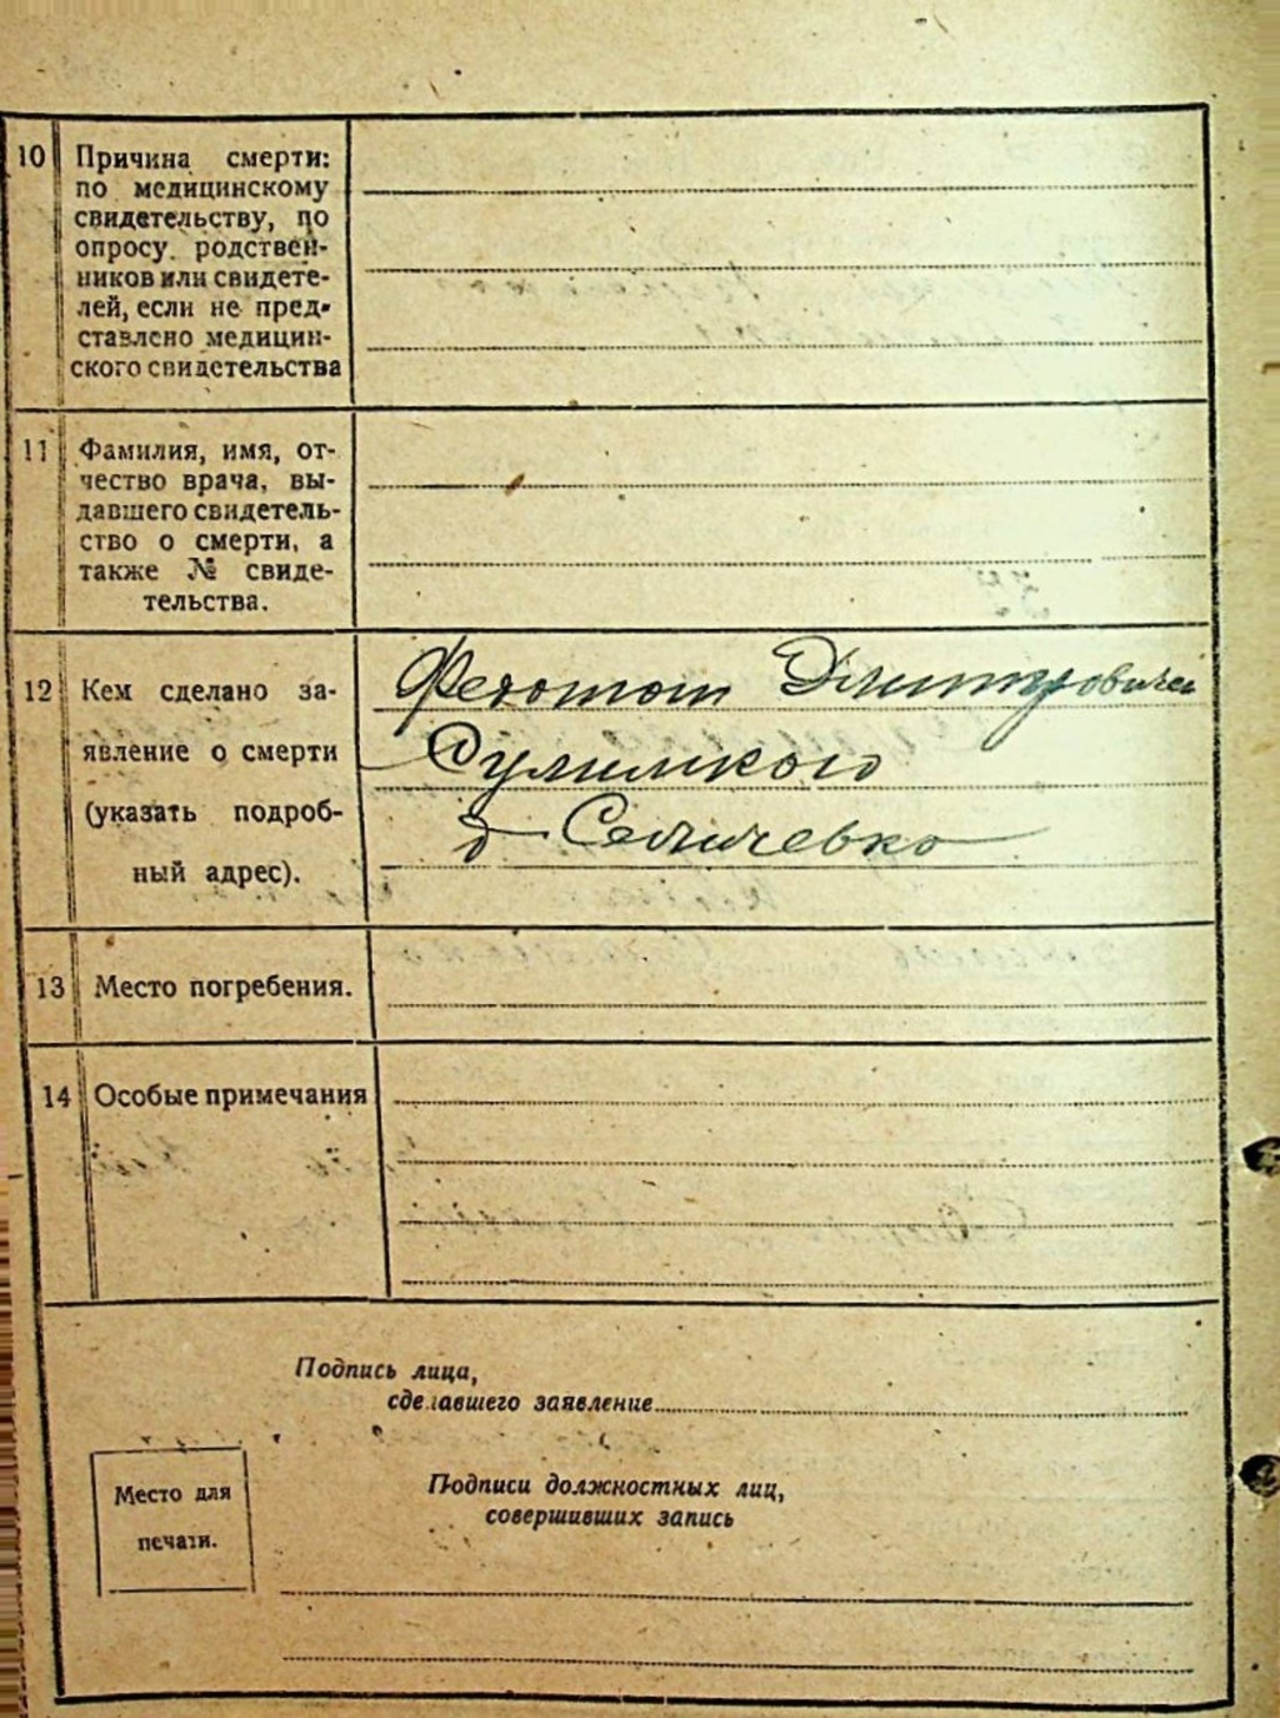 10 Причина смерти:
по медицинскому
свидетельству, по
опросу родствен-
ников или свидете-
лей, если не пред-
ставлено медицин-
ского свидетельства
11 Фамилия, имя, от-
чество врача, вы-
давшего свидетель-
ство о смерти, а
также № свиде-
тельства.
12 Кем сделано за-
явление о смерти
(указать подроб-
ный адрес).
Федотом Дмитровичем
д
13 Место погребения.
14 Особые примечания
Подпись лица,
сделавшего заявление
Место для
печати.
Подписи должностных лиц,
совершивших запись